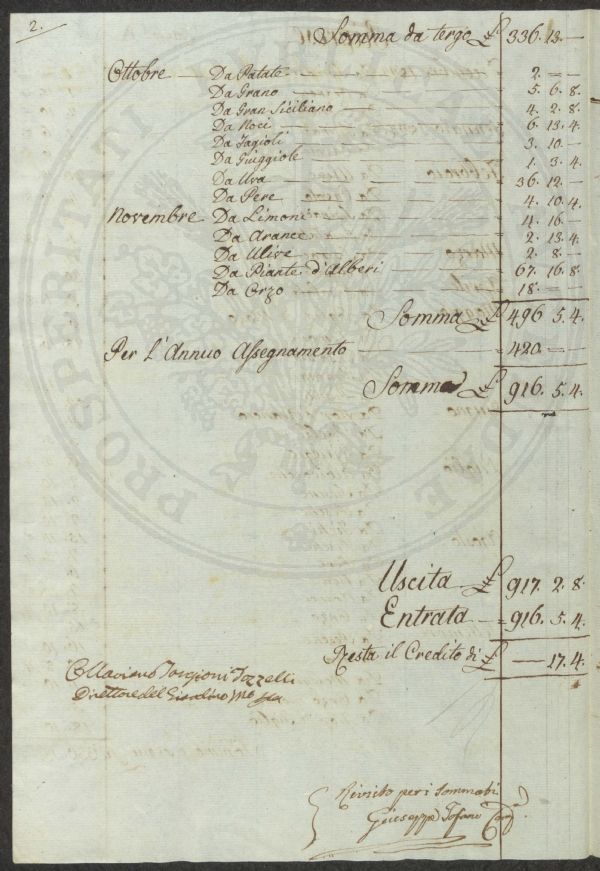 2.
Somma da tergo £ 336. 13. —
Ottobre — Da Patate — 2. — —
Da Grano — 5. 6. 8.
Da Gran Siciliano — 4. 2. 8.
Da Noci — 6. 13. 4.
Da Fagioli — 3. 10. —
Da Giuggiole — 1. 3. 4.
Da Uva — 36. 12. —
Da Pere — 4. 10. 4.
Novembre Da Limoni — 4. 16. —
Da Arance — 2. 13. 4.
Da Ulive — 2. 8. —
Da Piante d'Alberi — 67. 16. 8.
Da Orzo — 18. — —
Somma £ 496. 5. 4.
Per l'Annuo Assegnamento — 420. — —
Somma £ 916. 5. 4.
Uscita £ 917. 2. 8.
Entrata — 916. 5. 4.
Resta il Credito di £ — 17. 4.
Ottaviano Targioni Tozzelli
Direttore del Giardino
Rivisto per i Sommati
Giuseppe Tofani
PROSPERITATI